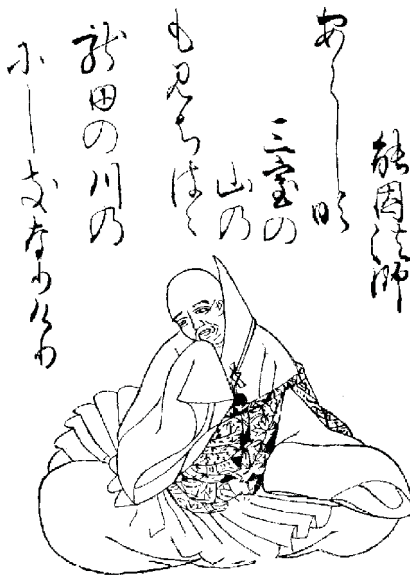 能因法師
あらし吹
三室の
山の
もみちはゝ
龍田の川の
にしきなりけり